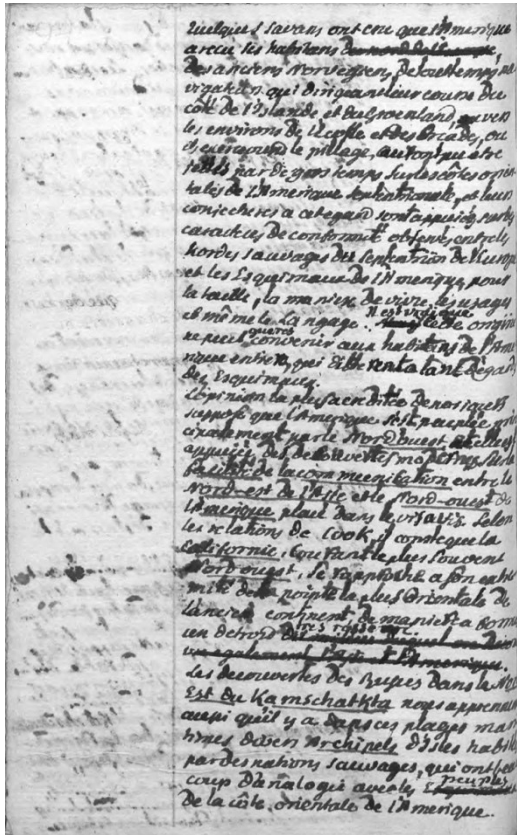 Quelques savans ont cru que l'Amerique
a recu ses habitans du nord de l'Europe,
des anciens Norvegiens, de tout temps na
vigateurs qui dirigeant leur course du
coté de l'Islande, et du Groenland, ou vers
les environs de l'Ecosse et des Orcades, ou
ils exercoient le pillage, auront pu etre
jettés par de gros temps sur les cotes orien
tales de l'Amerique septentrionale, et leurs
conjectures a cet egard sont appuiées sur les
caracteres de conformité observés entre les
hordes sauvages du septentrion de l'Europe
et les Esquimaux de l'Amerique, pour
la taille, la maniere de vivre, les usages
et même le langage. Il est vrai que cette origine
ne peut gueres convenir aux habitans de l'Ame
rique entiere, qui different a tant d'egards
des Esquimaux.
L'opinion la plus accréditée de nos jours
suppose que l'Amerique s'est peuplée prin
cipalement par le Nord ouest
appuiée des decouvertes modernes sur la
de la communication entre le
Nord-est de l'Asie et le Nord-ouest de
l'Amerique placé dans le vis a vis. Selon
les relations de Cook, il conste que la
Californie, courant le plus souvent
Nord ouest, se rapproche a son extré
mité de la pointe la plus Orientale de
l'ancien continent, de maniere a former
un detroit tres resserré.
Les decouvertes des Russes dans le Nord
Est du Kamschatkka nous apprennent
aussi qu'il y a dans ces plages mari
times divers Archipels d'isles habitées
par des nations sauvages, qui ont beau
coup d'analogie avec les peuples
de la côte orientale de l'Amerique.